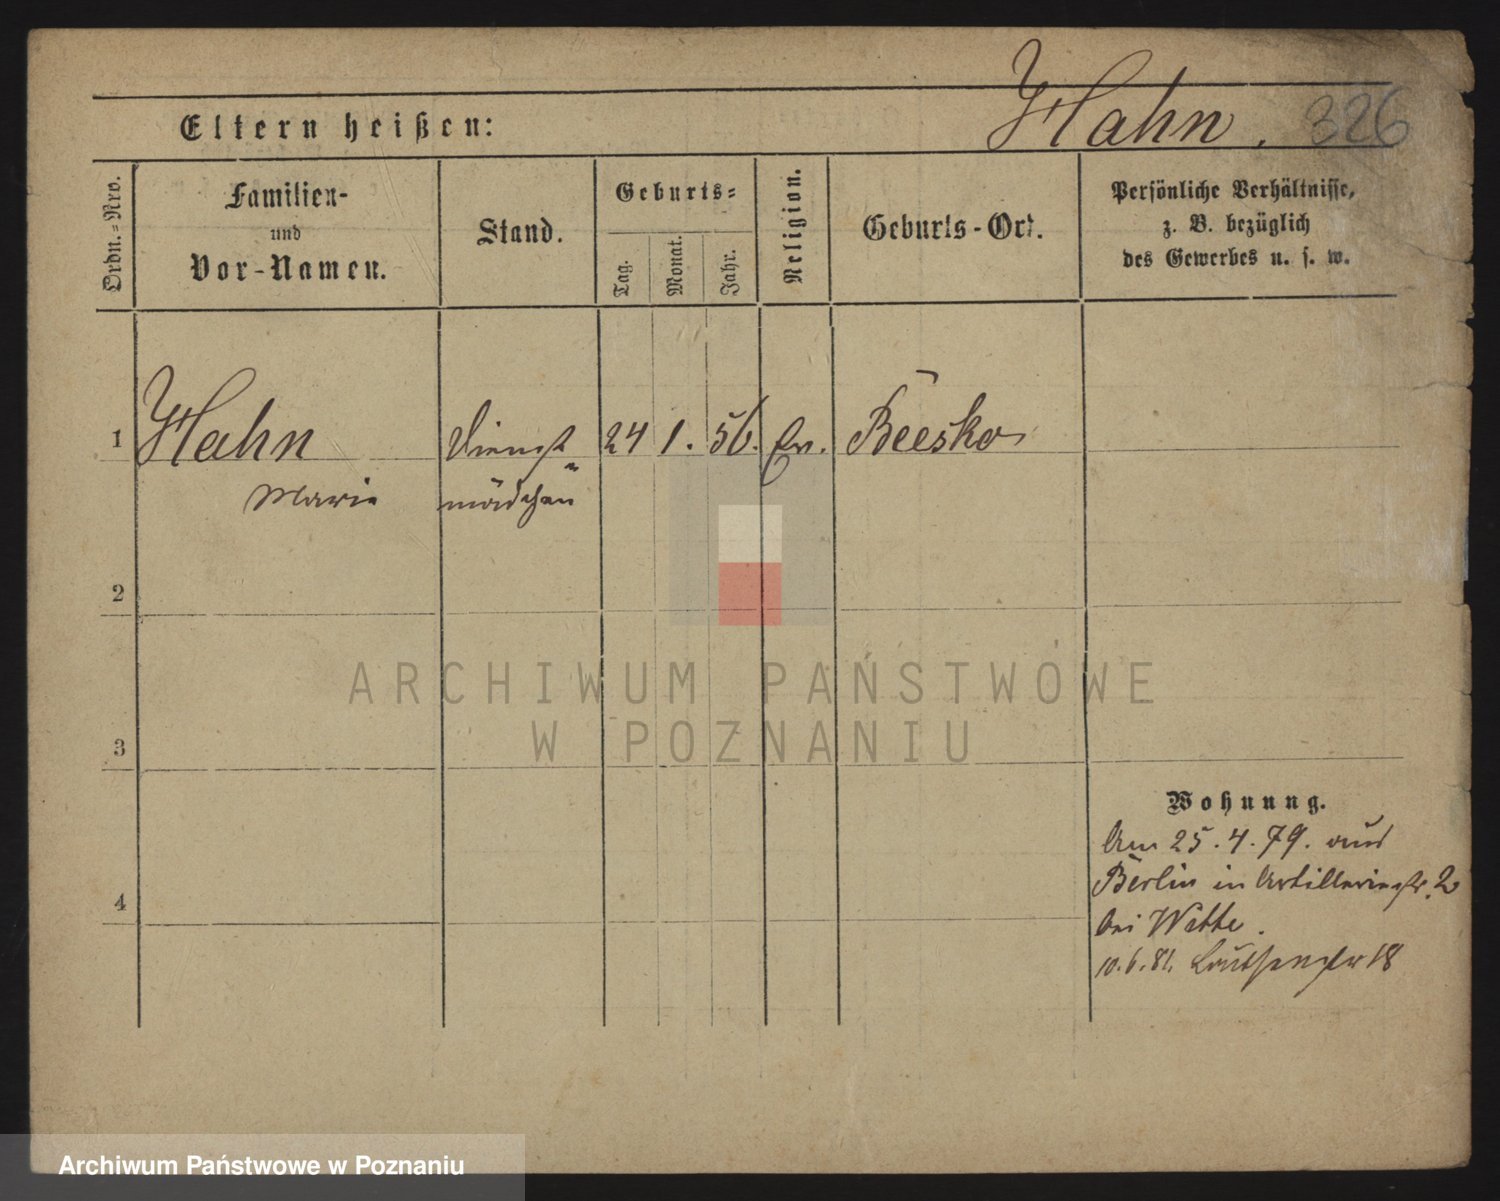 Hahn. 326
Eltern heißen:
Ordn.=Nro.
Familien-
und
Vor-Namen.
Stand.
Geburts=
Tag.
Monat.
Jahr.
Religion.
Geburts-Ort.
Persönliche Verhältnisse,
z. B. bezüglich
des Gewerbes u. s. w.
1 Hahn Dienst 24 1. 56. Ev. Beesko
Marie mädchen
2
3
4
Wohnung.
Am 25.4.79. aus
Berlin in Artilleriestr. 2
bei Witte.
10.6.81. 18
ARCHIWUM PAŃSTWOWE
W POZNANIU
Archiwum Państwowe w Poznaniu